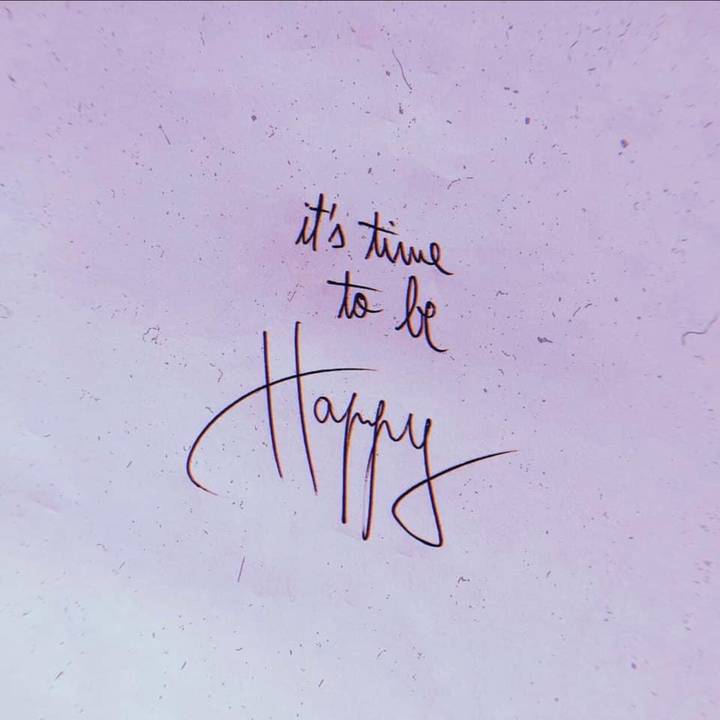 it's time
to be
Happy